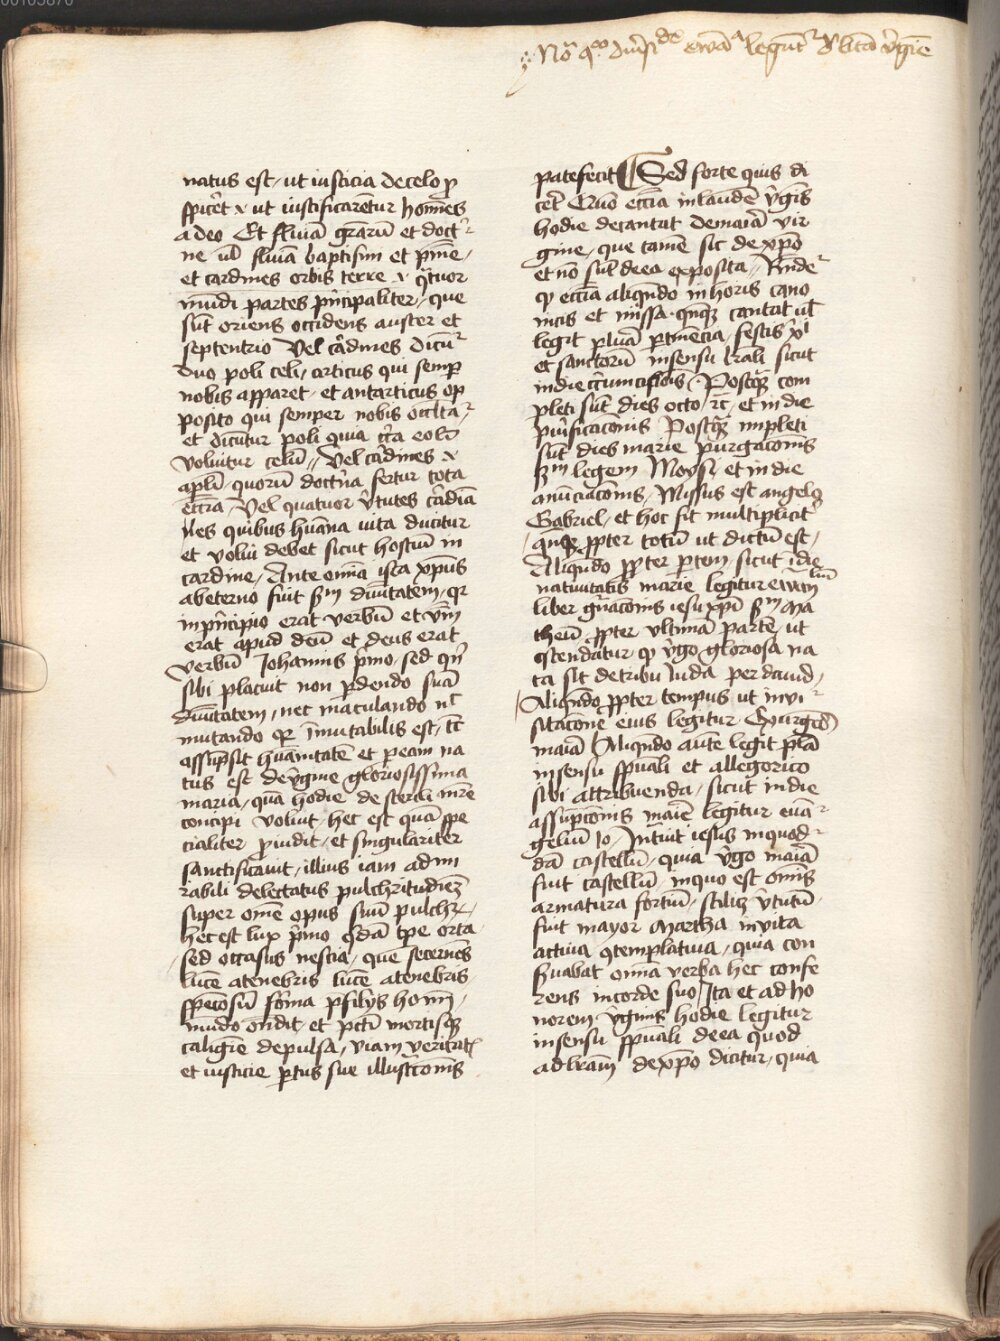 00103870
natus est / ut iusticia de celo p
spiceret et ut iustificarētur homīes
a deo Et fluuiū grarū et doctᵉ
ne ul fluuiū baptismi et pnīe /
et cardines orbis terre et qᵗuor
mūdi partes pⁱncipaliter / que
sūt oriens occidens auster et
septentrio Vel cardines dicūᵗ
duo poli celi / articus qui semp
nobis apparet / et antarticus op
posito qui semper nobis occlta
et dicūtur poli quia circa eos
voluitur celū // Vel cardines
apli quorū doctⁱna fertur tota
eccīa / Vel quatuor v̄tutes cardīa
les quibus huana uita ducitur
et volui debet sicut hostiū in
cardine / Ante om̄ia ista xp̄us
ab eterno fuit sm̄ diuītatem / qr
in pⁱncipio erat verbū et v̄m
erat apud deū et deus erat
verbū Johannis pⁱmo / sed qn̄
sibi placuit non pdendo suā
diuītatem / nec maculando
mutando qr īmutabilis est / tc̄
assūpsit huānitatē et p eam na
tus est de v̄gine gloriosissima
maria / quā hodie de sterili mr̄e
concipi voluit / hec est quā spe
cialiter puidit / et singulariter
sanctificauit / illius iam admi
rabili delectatus pulchritudine
super om̄e opus suū pulchr /
hec est lux pⁱmo qdā tp̄e orta
sed occasus nescia / que secernēs
lucē a tenebris lucē a tenebris
speciosū forma p filiis homī /
mūdo ondit / et pcti mortisqz
caligīe depulsa / viam veritatis
et iusticie ptus sue illustcōnis
patefecit Sed forte quis di
cet Quō eccīa in laudē v̄gīs
hodie decantat de maria vir
gine / que tamē sic de xp̄o
et nō sul de ea exposita / Rn̄deᵗ
qʒ eccīa aliqn̄do in horis cano
nicis et missa qn̄qz cantat ul̄
legit plura ptinēcia festis xⁱ
et sanctorū in sensu lrāli sicut
in die circumcisiōis Postqʒ com
pleti sūt dies octo / tc̄ / et in die
purificacōnis Postqʒ impleti
sūt dies marie purgacōnis
sm̄ legem Moysi et in die
anūciacōnis / Missus est angelꝰ
Gabriel / et hoc fit multiplicitʳ
qn̄qz ppter totū ut dictū est /
Aliqn̄do ppter ptem sicut ī die
natiuitatis marie legitur ewāⁱᵘᵐ
liber gn̄acōnis iesu xp̄i sm̄ Ma
theū ppter ultimā partē / ut
ostendatur / qʒ v̄go gloriosa na
ta sit de tribu iuda per dauid /
Aliqn̄do ppter tempus ut in vi
sitacōne eius legitur Exurgēs
maria Aliqn̄do autē legit plā
in sensu spūali et allegorico
sibi attribuenda / sicut in die
assūpcōnis marie legitur euā
geliū Jo / Intrāt iesus in quod
dā castellū / quia v̄go maria
fuit castellū / in quo est om̄is
armatura fortiū / scilicʒ v̄tutū
fuit mayor Martha in vita
actiua 9templatiua / quia con
s̄uabat om̄ia verba hec confe
rens in corde suo / Ita et ad ho
norem v̄ginis hodie legitur
in sensu spūali de ea quod
ad lrām de xp̄o dicitur / quia